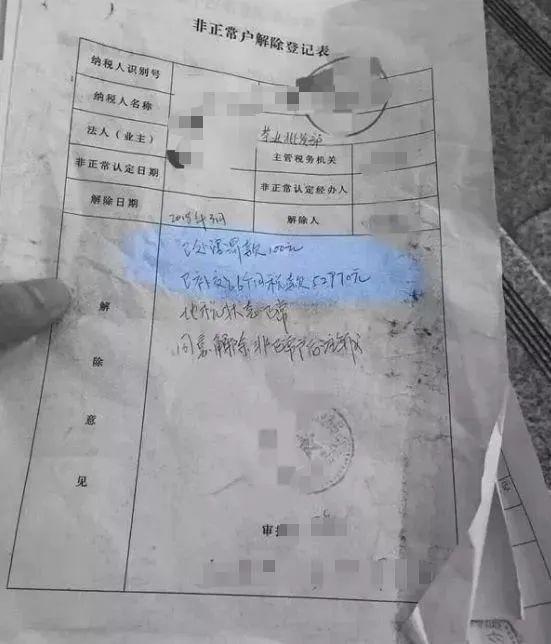 非正常户解除登记表
纳税人识别号
纳税人名称
法人（业主） 茶业批发部 主管税务机关
非正常认定日期 非正常认定经办人
解除日期 2018年3月 解除人
已处理罚款100元
已补交 个月税款52970元
地税状态正常
同意解除非正常户
解
除
意
见
审批